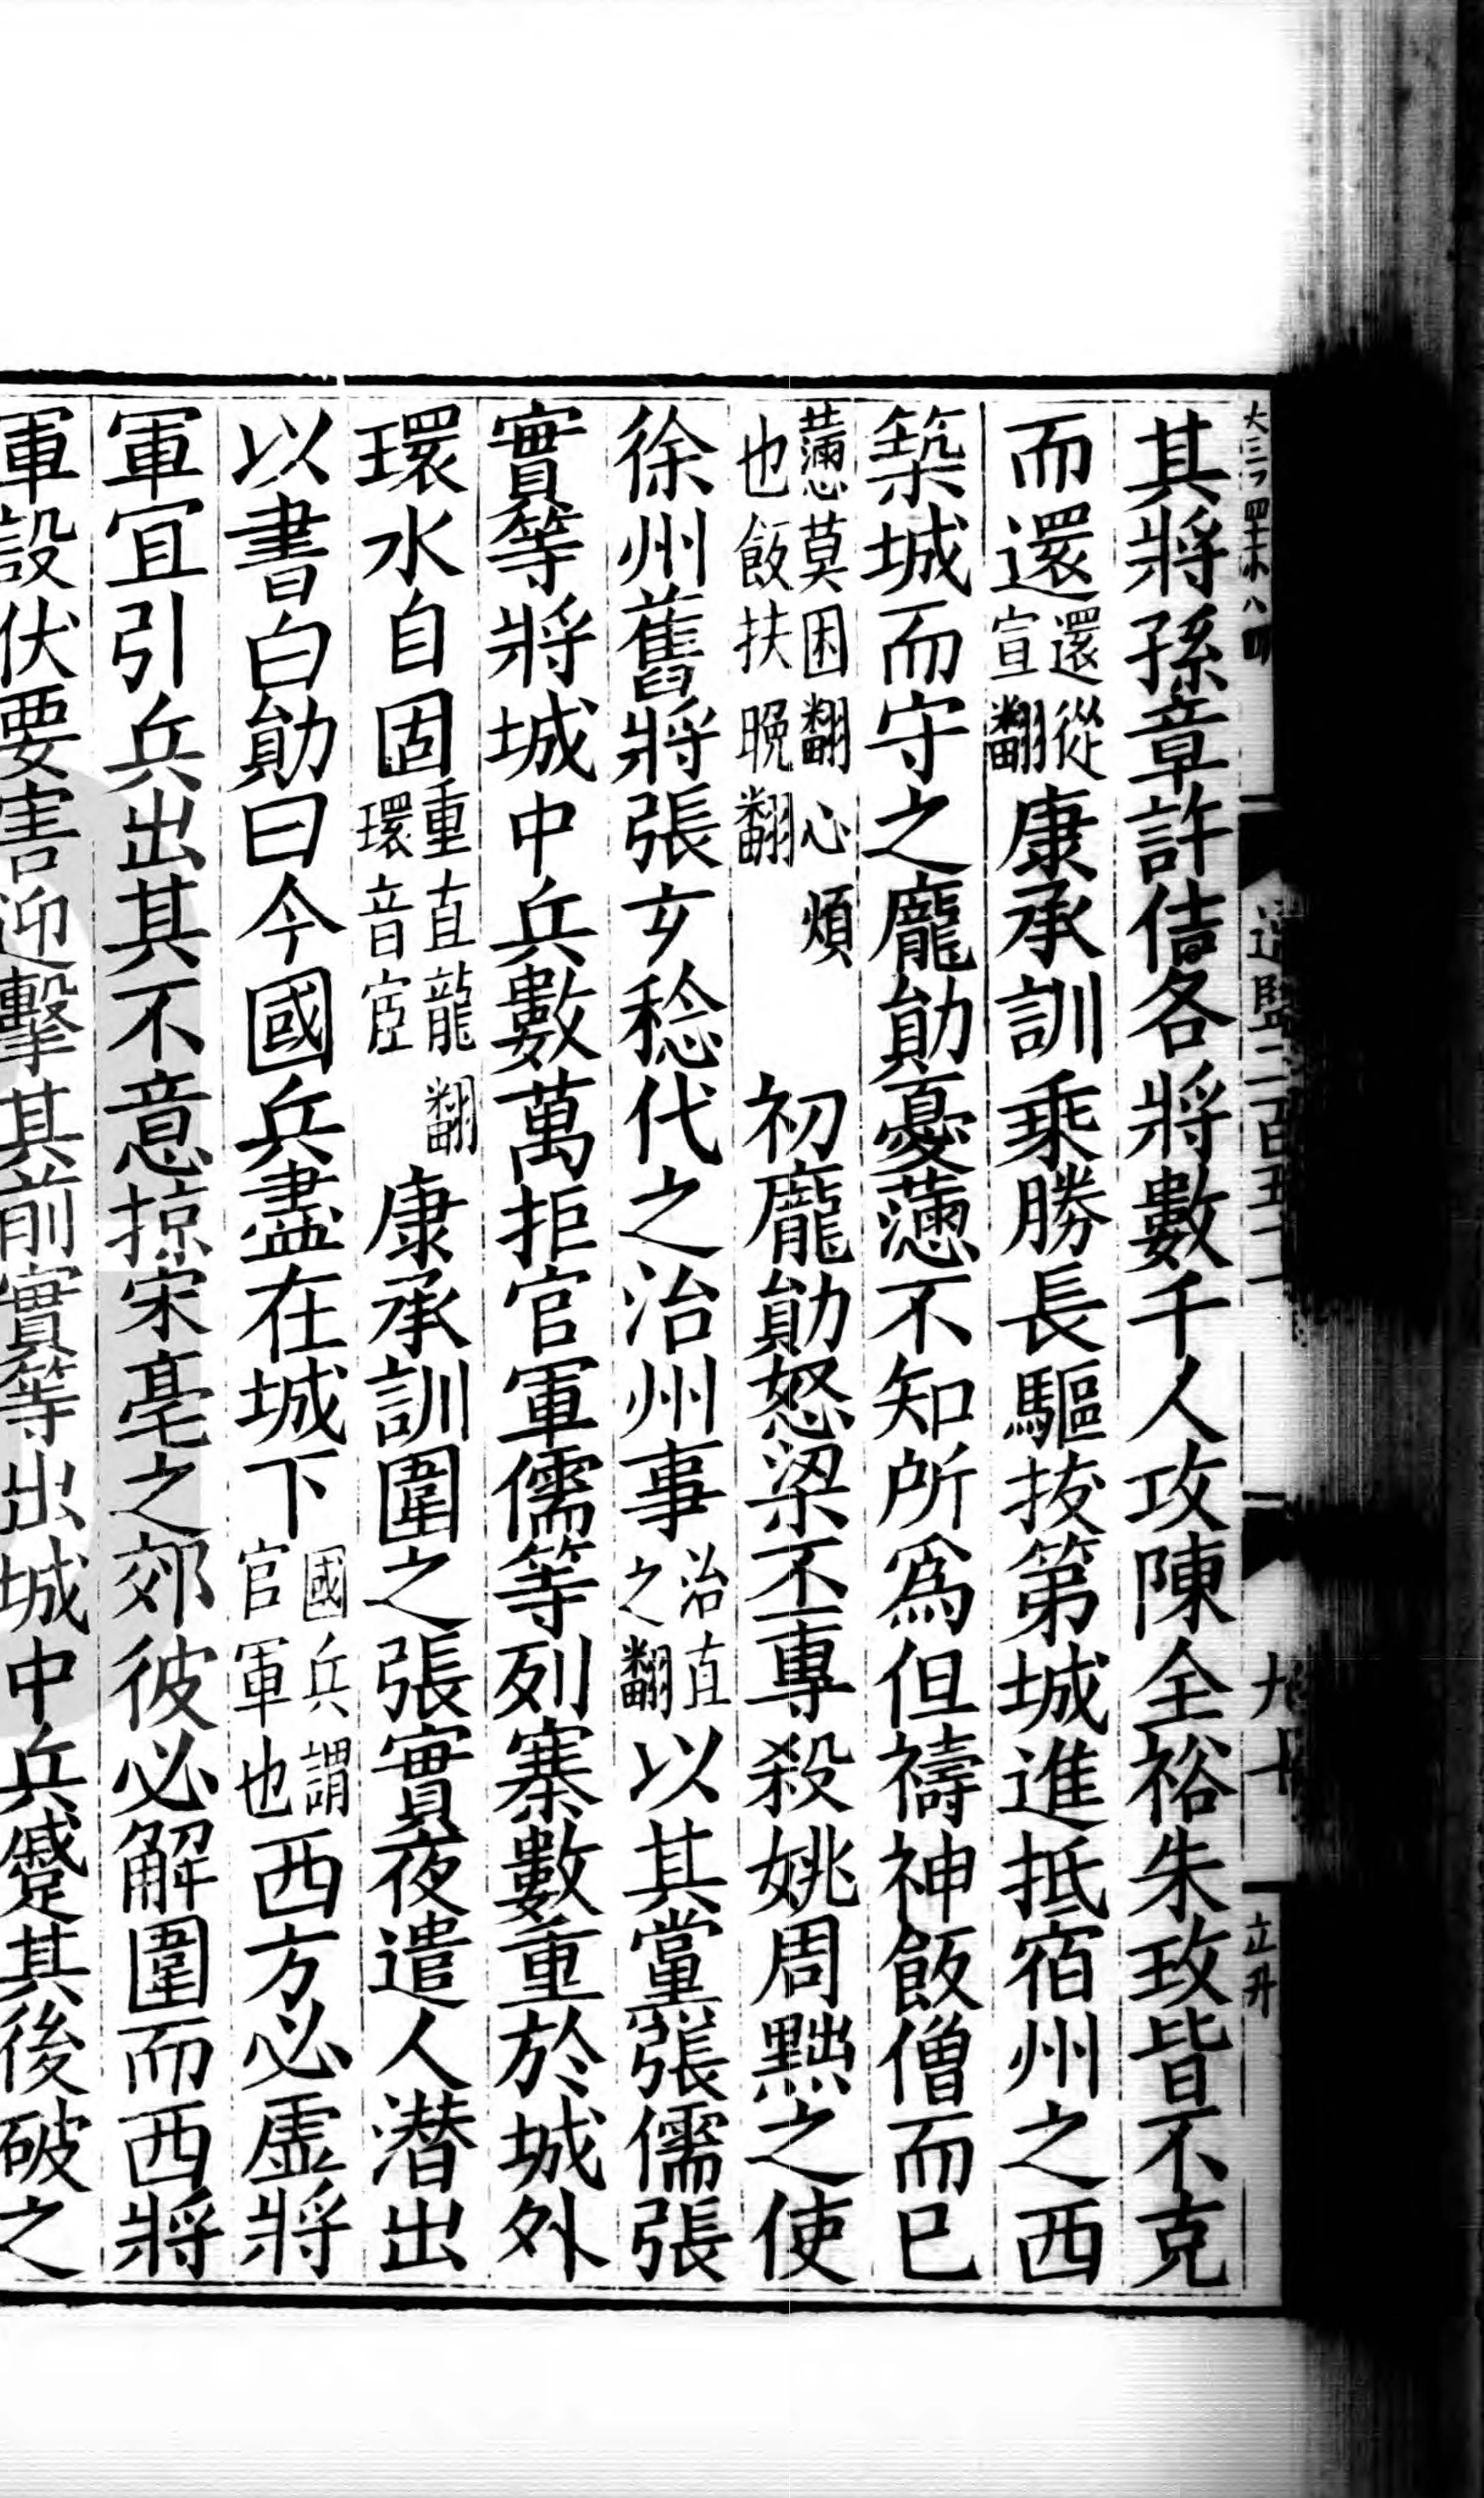 其將孫章許佶各將數千人攻陳全裕朱玫皆不克
而還還從宣翻康承訓乘勝長驅拔第城進抵宿州之西
築城而守之龐勛憂懣不知所爲但禱神飯僧而已
懣莫困翻心煩也飯扶晚翻初龐勛怒梁丕專殺姚周黜之使
徐州舊將張玄稔代之治州事治直之翻以其黨張儒張
實等將城中兵數萬拒官軍儒等列寨數重於城外
環水自固重直龍翻環音宦康承訓圍之張實夜遣人潜出
以書白勛曰今國兵盡在城下國兵謂官軍也西方必虛將
軍宜引兵出其不意掠宋亳之郊彼必解圍而西將
軍設伏要害迎擊其前實等出城中兵蹙其後破之